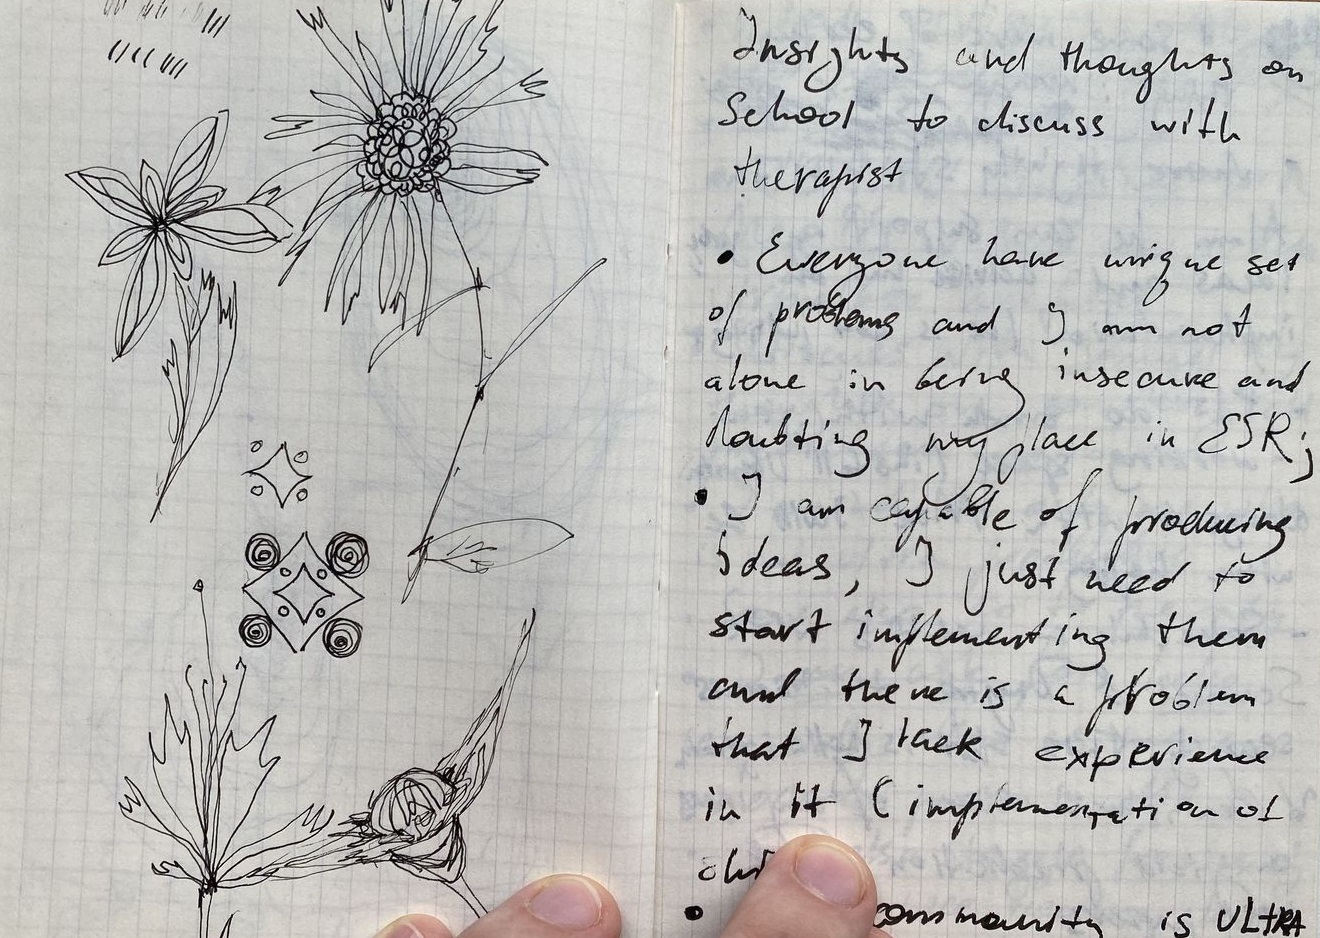 Insights and thoughts on
School to discuss with
therapist
• Everyone have unique set
of problems and I am not
alone in being insecure and
doubting my place in ESR;
• I am capable of producing
ideas, I just need to
start implementing them
and there is a problem
that I lack experience
in it (implementation of
• community is ULTRA